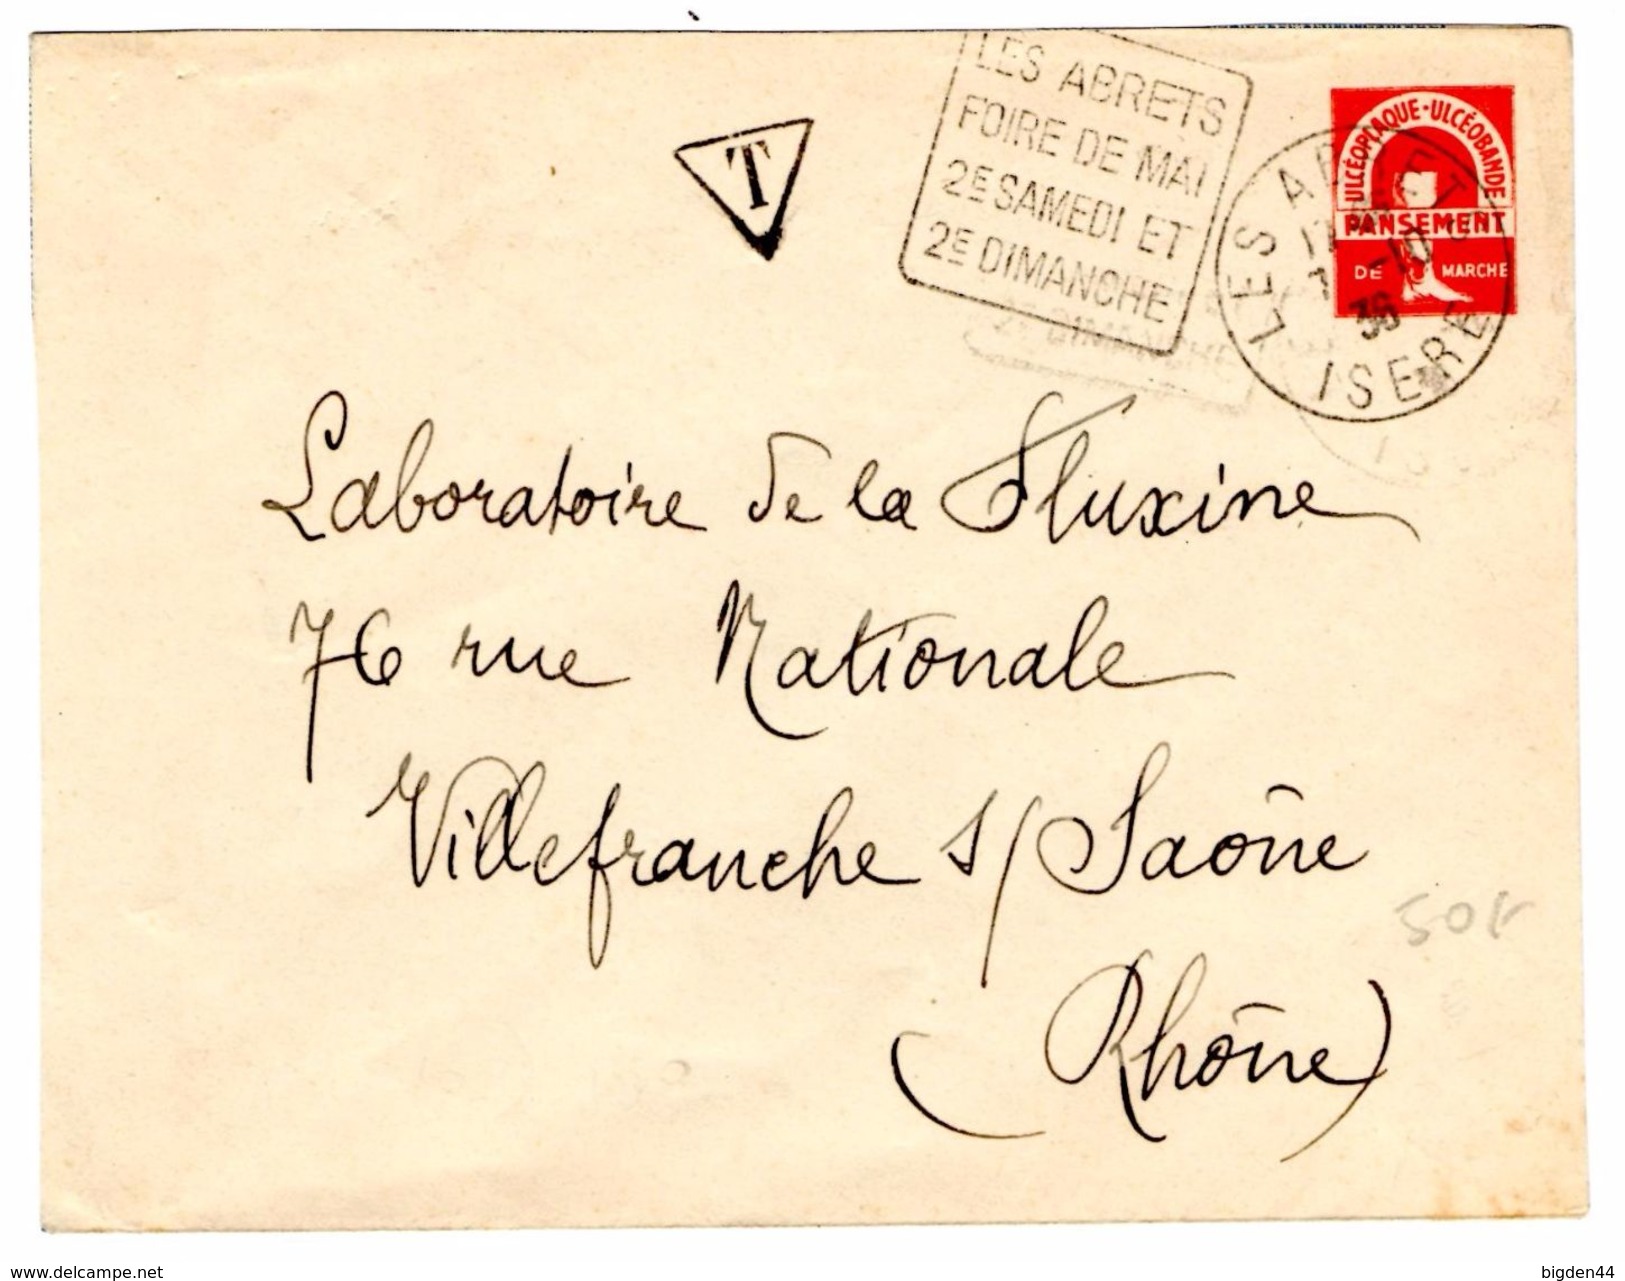 LES ABRETS
FOIRE DE MAI
2E SAMEDI ET
2E DIMANCHE
DIMANCHE
T
ULCÉOPLAQUE-ULCÉOBANDE
PANSEMENT
DE MARCHE
LES ABRETS
-10
36
ISERE
Laboratoire de la Fluxine
76 rue Nationale
Villefranche s/ Saône
(Rhône)
www.delcampe.net
bigden44